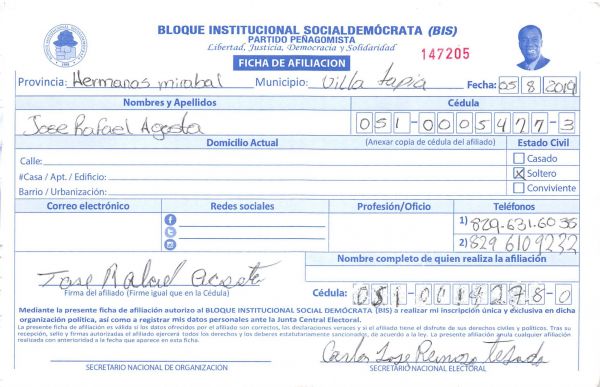 BLOQUE INSTITUCIONAL SOCIALDEMÓCRATA (BIS)
PARTIDO PEÑAGOMISTA
Libertad, Justicia, Democracia y Solidaridad
FICHA DE AFILIACION
147205
Provincia: Hermanas mirabal Municipio: Villa tapia Fecha: 05 8 2019
Nombres y Apellidos Cédula
Jose Rafael Agosta 051-0005477-3
Domicilio Actual (Anexar copia de cédula del afiliado) Estado Civil
Calle: Casado
#Casa / Apt. / Edificio: X Soltero
Barrio / Urbanización: Conviviente
Correo electrónico Redes sociales Profesión/Oficio Teléfonos
1) 829-631-6035
2) 829 6109232
Nombre completo de quien realiza la afiliación
Jose Rafael Acosta
Firma del afiliado (Firme igual que en la Cédula) Cédula: 051-0014278-0
Mediante la presente ficha de afiliación autorizo al BLOQUE INSTITUCIONAL SOCIAL DEMÓCRATA (BIS) a realizar mi inscripción única y exclusiva en dicha
organización política, así como a registrar mis datos personales ante la Junta Central Electoral.
La presente ficha de afiliación es válida si los datos ofrecidos por el afiliado son correctos, las declaraciones veraces y si el afiliado tiene el disfrute de sus derechos civiles y políticos. Tras su
recepción, sello y firmas autorizadas el afiliado ejercerá todos los derechos y los deberes estatutariamente sancionados, de acuerdo a la ley. La presente afiliación anula cualquier afiliación
realizada con anterioridad a la fecha que aparece en esta ficha.
Carlos Jose Reinoso Tejada
SECRETARIO NACIONAL DE ORGANIZACION SECRETARIO NACIONAL ELECTORAL